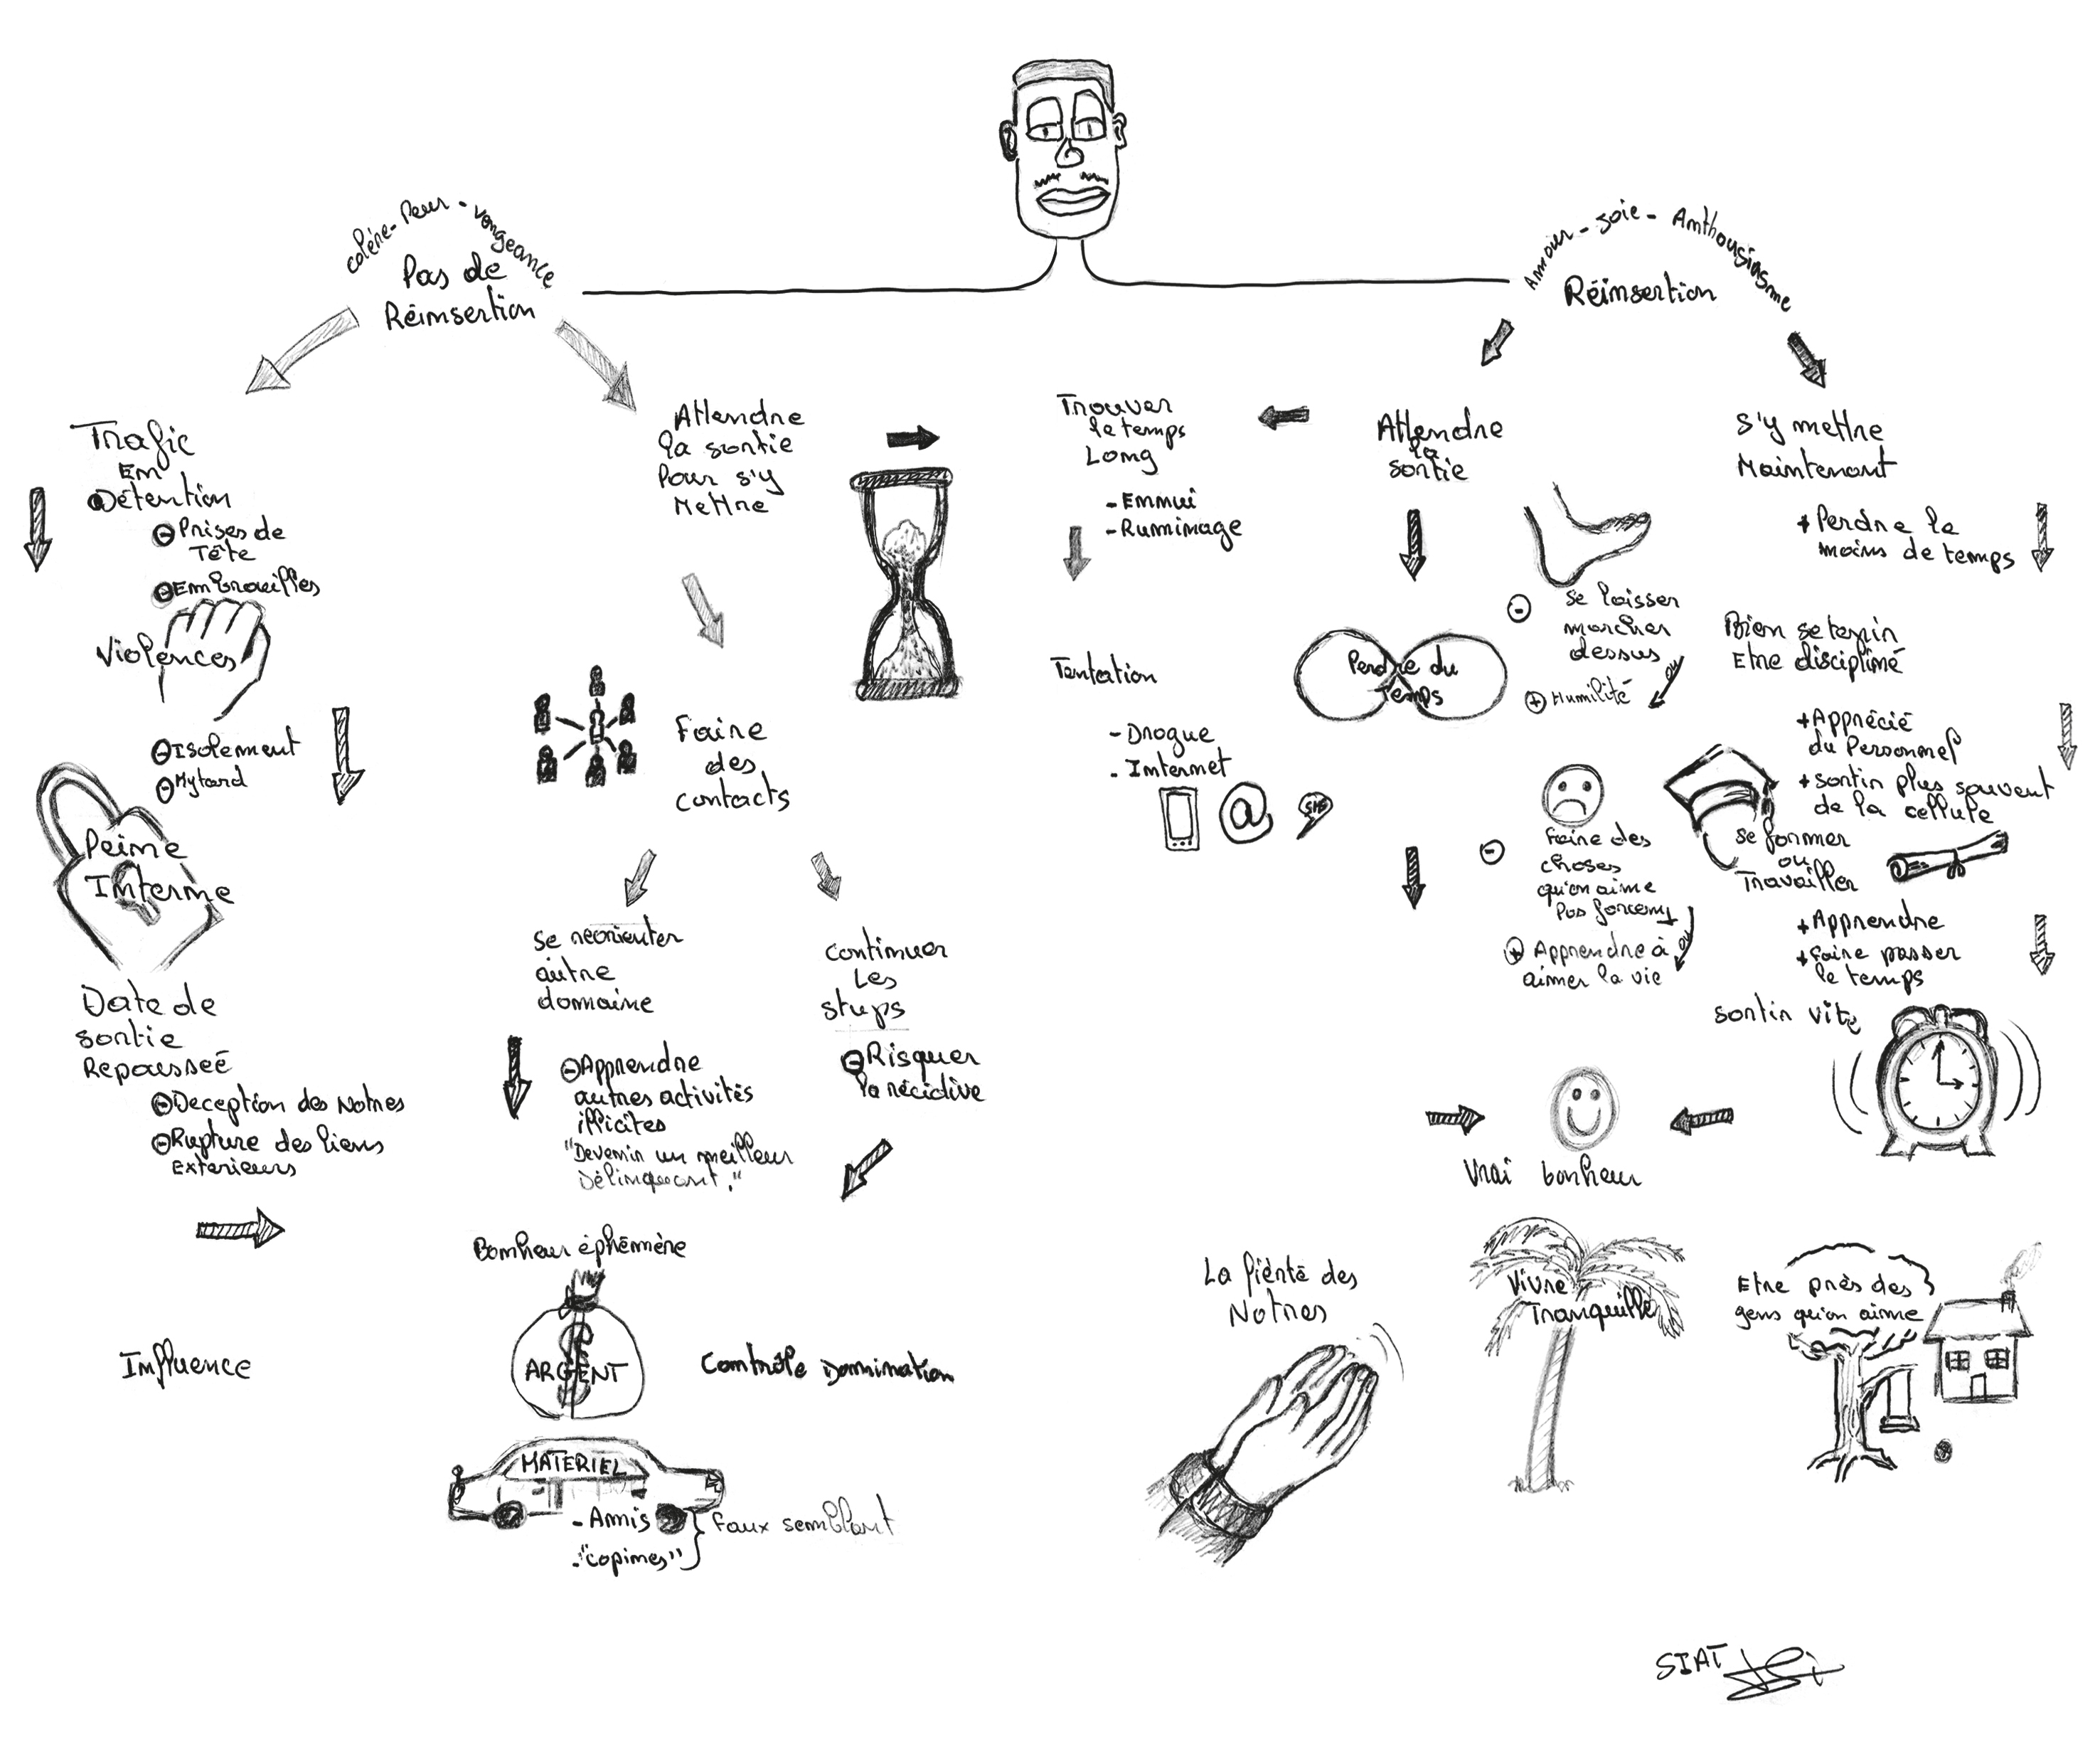 colére - Peur - vengeance
Pas de
Réinsertion
Amour - Joie - Anthousiasme
Réinsertion
Trafic
En
Détention
- Prises de
Tête
- Embrouilles
Violences
- Isolement
- Mytard
Peine
Interne
Date de
sortie
Repousseé
- Deception des Notres
- Rupture des liens
Exterieurs
Attendre
la sortie
Pour s'y
Mettre
Faire
des
contacts
se réorienter
autre
domaine
- Apprendre
autres activités
illicites
"Devenir un meilleur
Délinquant."
continuer
Les
stups
- Risquer
la récidive
Bonheur éphémère
Influence
ARGENT
Contrôle Domination
MATERIEL
- Amis
- "copines"
Faux semblant
Trouver
le temps
Long
- Ennui
- Ruminage
Tentation
- Drogue
- Internet
@
SMS
Attendre
la
sortie
Perdre du
Temps
- se laisser
marcher
dessus
ou
+ Humilité
- Faire des
choses
qu'on aime
Pas forcement
ou
+ Apprendre à
aimer la vie
s'y mettre
Maintenant
+ Perdre le
moins de temps
Bien se tenir
Etre discipliné
+ Apprécié
du Personnel
+ sortir plus souvent
de la cellule
se former
ou
Travailler
+ Apprendre
+ Faire passer
le temps
sortir vite
Vrai bonheur
La fiérté des
Notres
Vivre
Tranquille
Etre près des
gens qu'on aime
SIAT